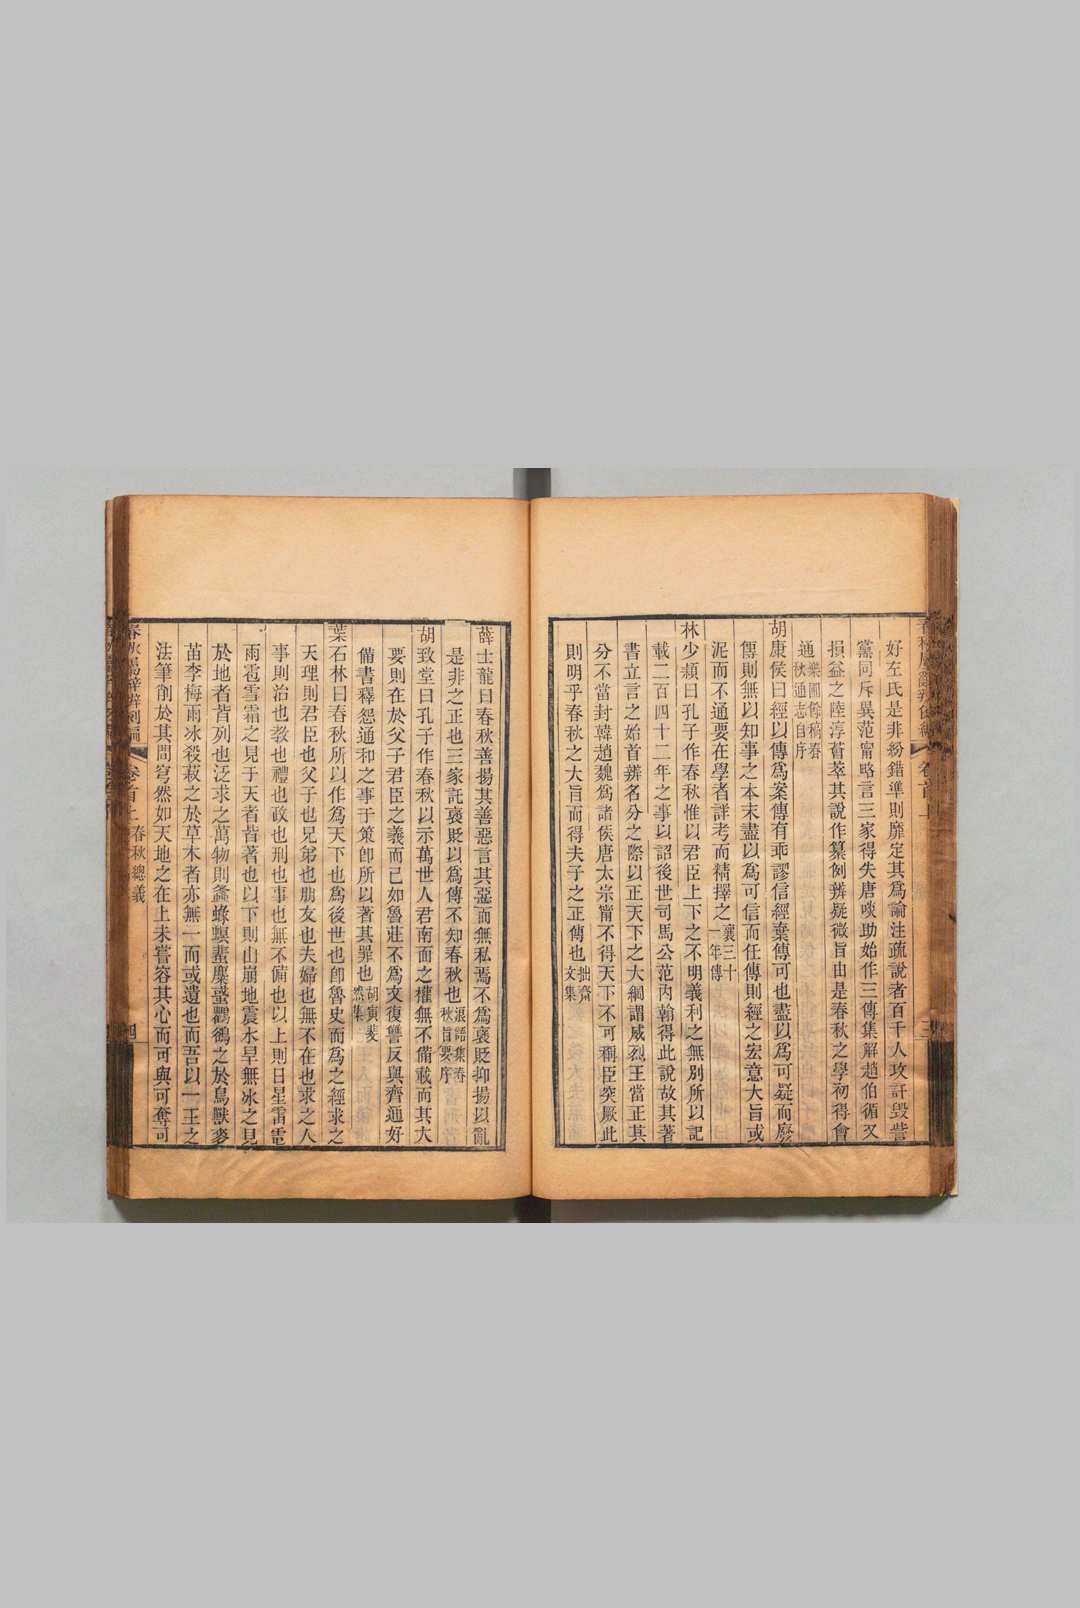 好左氏是非紛錯準則靡定其爲論注疏說者百千人攻訐毀訾
黨同斥異范甯略言三家得失唐啖助始作三傳集解趙伯循又
損益之陸淳薈萃其說作纂例辨疑微旨由是春秋之學初得會
通樂圃餘稿春秋通志自序
胡康侯曰經以傳爲案傳有乖謬信經棄傳可也盡以爲可疑而廢
傳則無以知事之本末盡以爲可信而任傳則經之宏意大旨或
泥而不通要在學者詳考而精擇之襄三十一年傳
林少穎曰孔子作春秋惟以君臣上下之不明義利之無別所以記
載二百四十二年之事以詔後世司馬公范內翰得此說故其著
書立言之始首辨名分之際以正天下之大綱謂威烈王當正其
分不當封韓趙魏爲諸侯唐太宗甯不得天下不可稱臣突厥此
則明乎春秋之大旨而得夫子之正傳也拙齋文集
薛士龍曰春秋善揚其善惡言其惡而無私焉不爲褒貶抑揚以亂
是非之正也三家託褒貶以爲傳不知春秋也浪語集春秋旨要序
胡致堂曰孔子作春秋以示萬世人君南面之權無不備載而其大
要則在於父子君臣之義而已如魯莊不爲文復讐反與齊通好
備書釋怨通和之事于策卽所以著其罪也胡寅斐然集
葉石林曰春秋所以作爲天下也爲後世也卽魯史而爲之經求之
天理則君臣也父子也兄弟也朋友也夫婦也無不在也求之人
事則治也教也禮也政也刑也事也無不備也以上則日星雷電
雨雹雪霜之見于天者皆著也以下則山崩地震水旱無冰之見
於地者皆列也泛求之萬物則螽蟓螟蜚麋蜮鸛鵒之於鳥獸麥
苗李梅雨冰殺菽之於草木者亦無一而或遺也而吾以一王之
法筆削於其間穹然如天地之在上未嘗容其心而可與可奪可
春秋屬辭辨例編
卷首上
春秋總義
四